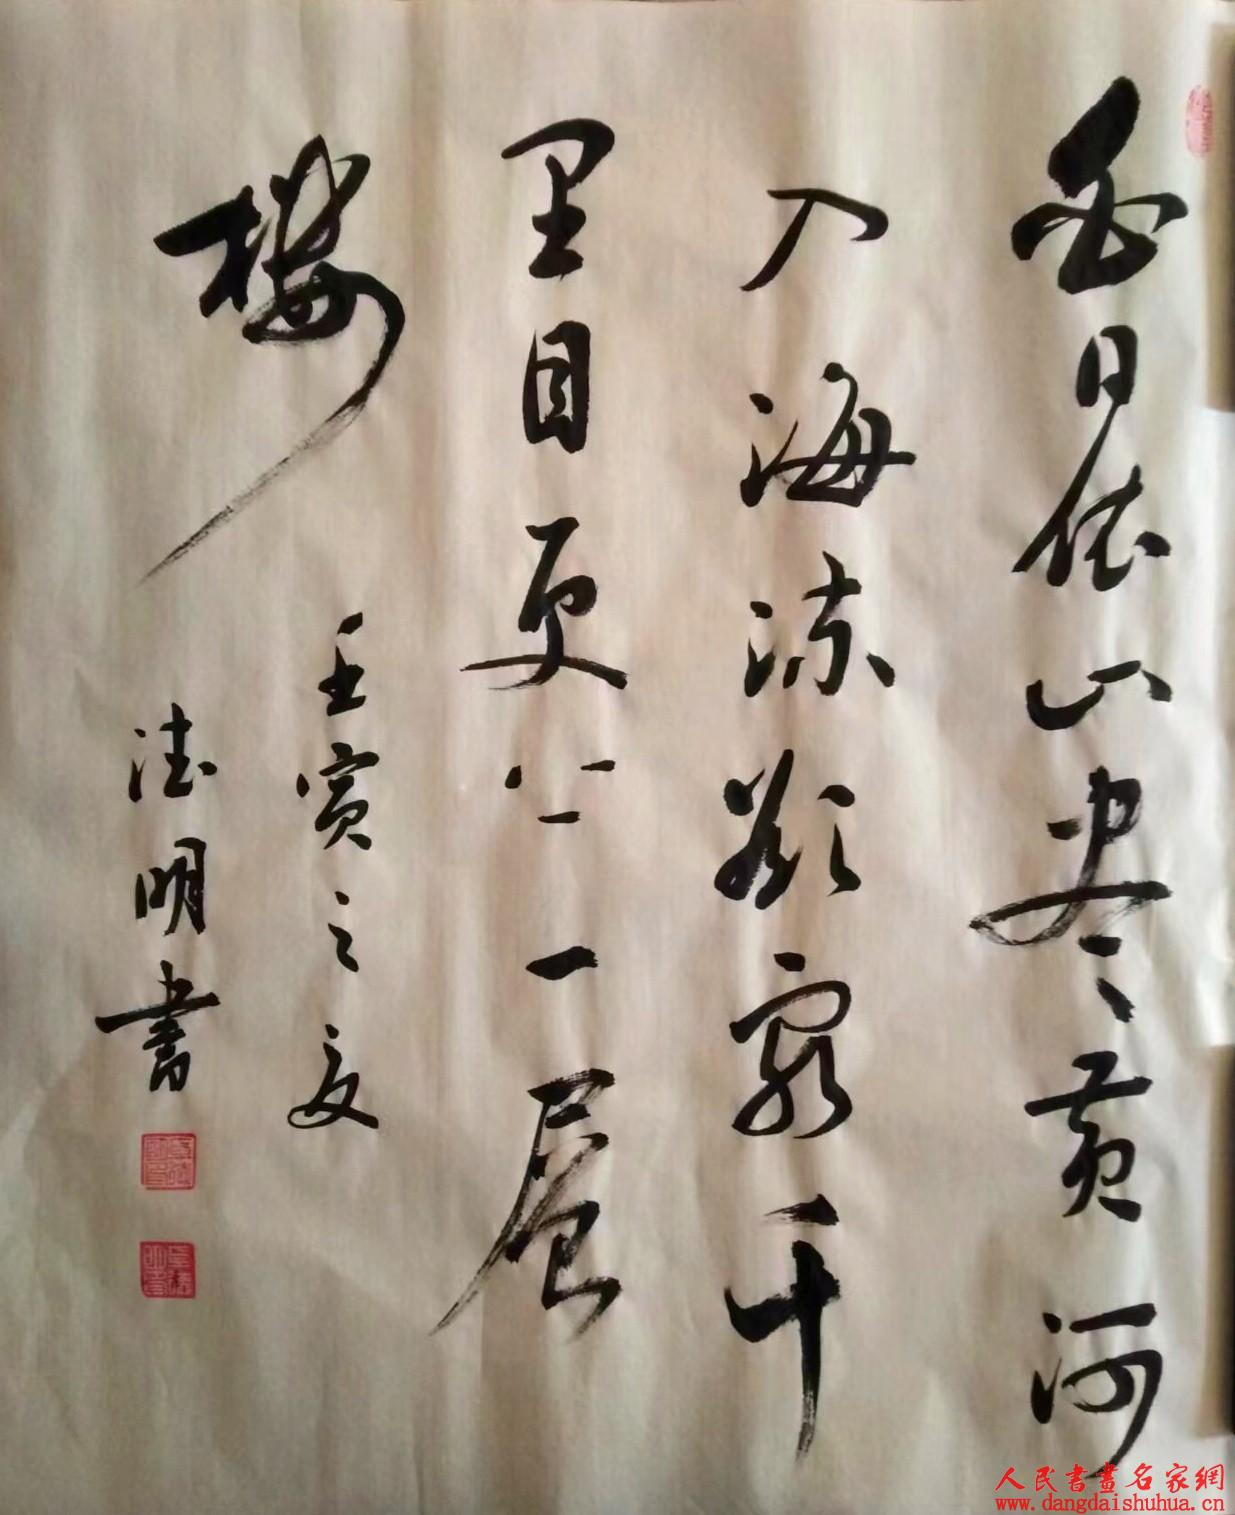 白日依山尽黄河
入海流欲穷千
里目更上一层
楼
壬寅之夏
德明書
人民書畫名家網
www.dangdaishuhua.cn